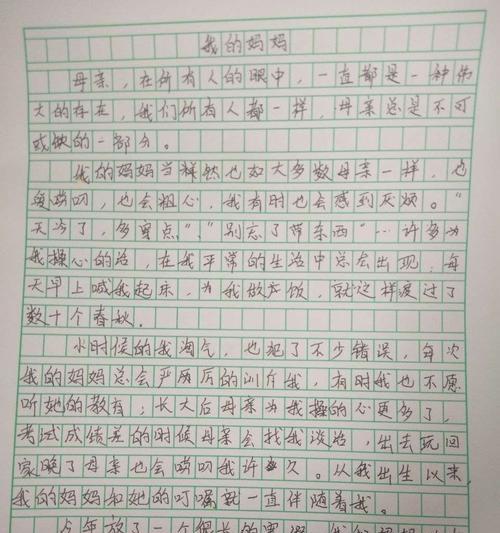 我的妈妈
母亲，在所有人的眼中，一直都是一种伟
大的存在，我们所有人都一样，母亲总是不可
或缺的一部分。
我的妈妈当然也如大多数母亲一样，也
爱唠叨，也会粗心，我有时也会感到厌烦。“
天冷了，多穿点”，“别忘了带东西”…许多为
我操心的话，在我平常的生活中总会出现，每
天早上喊我起床，为我做产饭，就这样渡过了
数十个春秋。
小时候的我淘气，也犯了不少错误，每次
我的妈妈总会严厉的训斥我，有时我也不愿
听她的教育；长大后母亲为我操的心更多了，
考试成绩差的时候母亲会找我谈话，出去玩回
家晚了母亲也会唠叨我许久。从我出生以来，
我的妈妈和她的叮嘱就一直伴随着我。
放了一个很长的寒假，我和妈妈